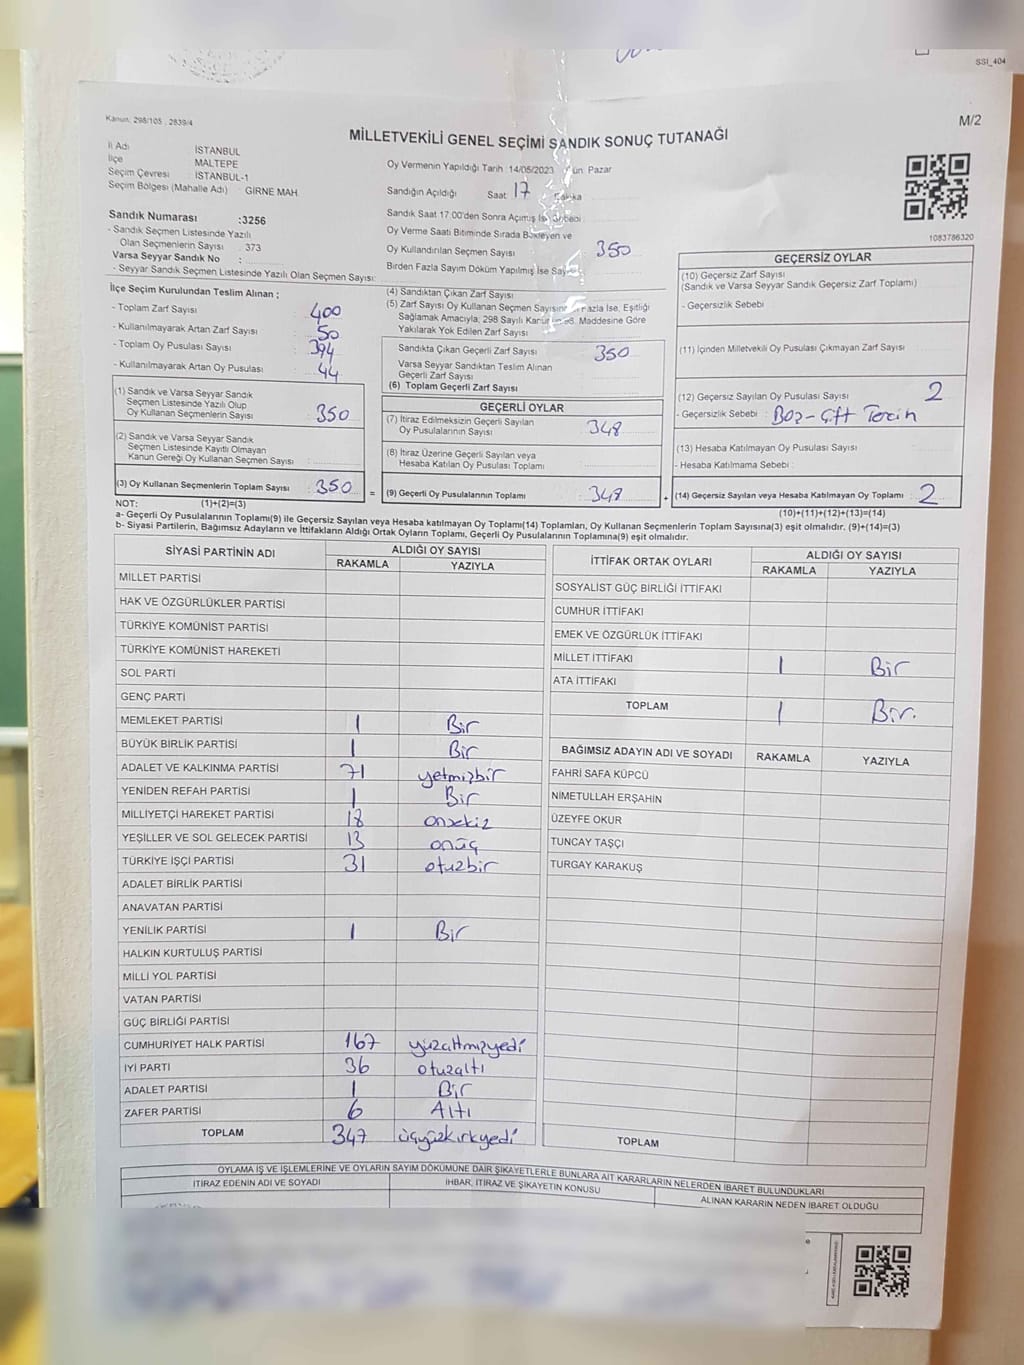 SSI_404
Kanun: 298/105 , 2839/4
M/2
MİLLETVEKİLİ GENEL SEÇİMİ SANDIK SONUÇ TUTANAĞI
İl Adı İSTANBUL
İlçe MALTEPE
Seçim Çevresi : İSTANBUL-1
Seçim Bölgesi (Mahalle Adı) : GİRNE MAH.
Oy Vermenin Yapıldığı Tarih :14/05/2023 Pazar
Sandığın Açıldığı Saat 17
Sandık Saat 17:00'den Sonra Açılmış İse
Oy Verme Saati Bitiminde Sırada Bekleyen ve
Oy Kullandırılan Seçmen Sayısı 350
Birden Fazla Sayım Döküm Yapılmış İse
1083786320
Sandık Numarası :3256
- Sandık Seçmen Listesinde Yazılı
Olan Seçmenlerin Sayısı : 373
Varsa Seyyar Sandık No :
- Seyyar Sandık Seçmen Listesinde Yazılı Olan Seçmen Sayısı:
İlçe Seçim Kurulundan Teslim Alınan ;
- Toplam Zarf Sayısı 400
- Kullanılmayarak Artan Zarf Sayısı 50
- Toplam Oy Pusulası Sayısı 394
- Kullanılmayarak Artan Oy Pusulası 44
(1) Sandık ve Varsa Seyyar Sandık
Seçmen Listesinde Yazılı Olup
Oy Kullanan Seçmenlerin Sayısı 350
(2) Sandık ve Varsa Seyyar Sandık
Seçmen Listesinde Kayıtlı Olmayan
Kanun Gereği Oy Kullanan Seçmen Sayısı :
(3) Oy Kullanan Seçmenlerin Toplam Sayısı : 350 =
(4) Sandıktan Çıkan Zarf Sayısı
(5) Zarf Sayısı Oy Kullanan Seçmen Fazla İse, Eşitliği
Sağlamak Amacıyla, 298 Sayılı Maddesine Göre
Yakılarak Yok Edilen Zarf Sayısı
Sandıkta Çıkan Geçerli Zarf Sayısı 350
Varsa Seyyar Sandıktan Teslim Alınan
Geçerli Zarf Sayısı
(6) Toplam Geçerli Zarf Sayısı
GEÇERLİ OYLAR
(7) İtiraz Edilmeksizin Geçerli Sayılan
Oy Pusulalarının Sayısı 348
(8) İtiraz Üzerine Geçerli Sayılan veya
Hesaba Katılan Oy Pusulası Toplamı
(9) Geçerli Oy Pusulalarının Toplamı 348 +
GEÇERSİZ OYLAR
(10) Geçersiz Zarf Sayısı
(Sandık ve Varsa Seyyar Sandık Geçersiz Zarf Toplamı)
- Geçersizlik Sebebi
(11) İçinden Milletvekili Oy Pusulası Çıkmayan Zarf Sayısı
(12) Geçersiz Sayılan Oy Pusulası Sayısı 2
- Geçersizlik Sebebi : Boş - Çift Tercih
(13) Hesaba Katılmayan Oy Pusulası Sayısı
- Hesaba Katılmama Sebebi :
(14) Geçersiz Sayılan veya Hesaba Katılmayan Oy Toplamı 2
NOT: (1)+(2)=(3)
(10)+(11)+(12)+(13)=(14)
a- Geçerli Oy Pusulalarının Toplamı(9) ile Geçersiz Sayılan veya Hesaba katılmayan Oy Toplamı(14) Toplamları, Oy Kullanan Seçmenlerin Toplam Sayısına(3) eşit olmalıdır. (9)+(14)=(3)
b- Siyasi Partilerin, Bağımsız Adayların ve İttifakların Aldığı Ortak Oyların Toplamı, Geçerli Oy Pusulalarının Toplamına(9) eşit olmalıdır.
SİYASİ PARTİNİN ADI ALDIĞI OY SAYISI
RAKAMLA YAZIYLA
MİLLET PARTİSİ
HAK VE ÖZGÜRLÜKLER PARTİSİ
TÜRKİYE KOMÜNİST PARTİSİ
TÜRKİYE KOMÜNİST HAREKETİ
SOL PARTİ
GENÇ PARTİ
MEMLEKET PARTİSİ 1 Bir
BÜYÜK BİRLİK PARTİSİ 1 Bir
ADALET VE KALKINMA PARTİSİ 71 yetmişbir
YENİDEN REFAH PARTİSİ 1 Bir
MİLLİYETÇİ HAREKET PARTİSİ 18 onsekiz
YEŞİLLER VE SOL GELECEK PARTİSİ 13 onüç
TÜRKİYE İŞÇİ PARTİSİ 31 otuzbir
ADALET BİRLİK PARTİSİ
ANAVATAN PARTİSİ
YENİLİK PARTİSİ 1 Bir
HALKIN KURTULUŞ PARTİSİ
MİLLİ YOL PARTİSİ
VATAN PARTİSİ
GÜÇ BİRLİĞİ PARTİSİ
CUMHURİYET HALK PARTİSİ 167 yüzaltmışyedi
İYİ PARTİ 36 otuzaltı
ADALET PARTİSİ 1 Bir
ZAFER PARTİSİ 6 Altı
TOPLAM 347 üçyüzkırkyedi
İTTİFAK ORTAK OYLARI ALDIĞI OY SAYISI
RAKAMLA YAZIYLA
SOSYALİST GÜÇ BİRLİĞİ İTTİFAKI
CUMHUR İTTİFAKI
EMEK VE ÖZGÜRLÜK İTTİFAKI
MİLLET İTTİFAKI 1 Bir
ATA İTTİFAKI
TOPLAM 1 Bir.
BAĞIMSIZ ADAYIN ADI VE SOYADI RAKAMLA YAZIYLA
FAHRİ SAFA KÜPCÜ
NİMETULLAH ERŞAHİN
ÜZEYFE OKUR
TUNCAY TAŞÇI
TURGAY KARAKUŞ
TOPLAM
OYLAMA İŞ VE İŞLEMLERİNE VE OYLARIN SAYIM DÖKÜMÜNE DAİR ŞİKAYETLERLE BUNLARA AİT KARARLARIN NELERDEN İBARET BULUNDUKLARI
İTİRAZ EDENİN ADI VE SOYADI İHBAR, İTİRAZ VE ŞİKAYETİN KONUSU ALINAN KARARIN NEDEN İBARET OLDUĞU